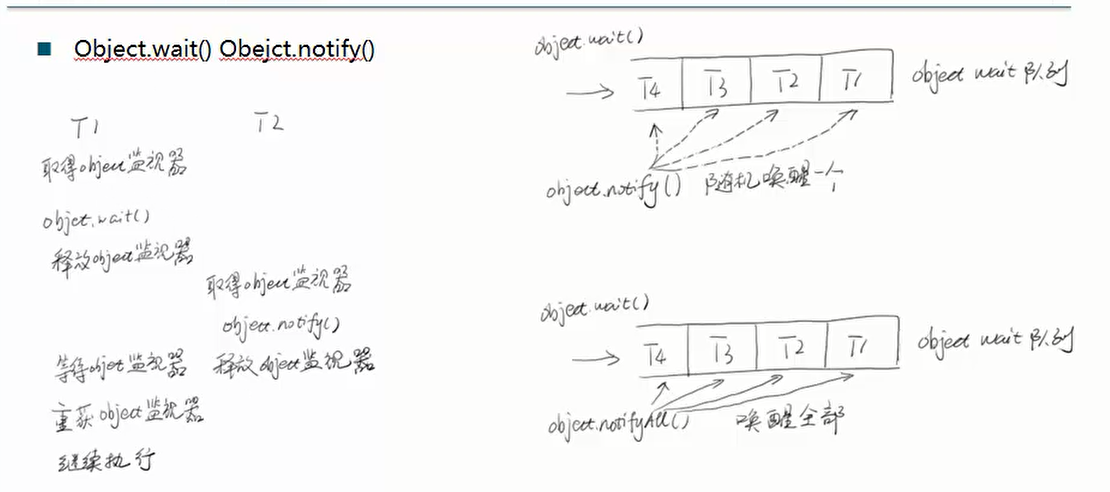 Object.wait() Obejct.notify()
T1
T2
取得object监视器
objct.wait()
释放object监视器
取得object监视器
object.notify()
等待objet监视器
释放object监视器
重获object监视器
继续执行
object.wait()
T4 T3 T2 T1
object wait 队列
object.notify() 随机唤醒一个
object.wait()
T4 T3 T2 T1
object wait 队列
object.notifyAll() 唤醒全部